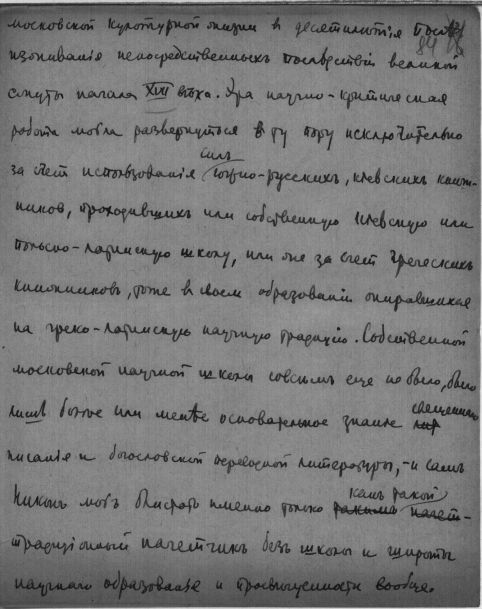 московской культурной жизни в десятилѣтія послѣ
84
изживанія непосредственныхъ послѣдствій великой
смуты начала XVII вѣка. Эта научно-критическая
работа могла развернуться в ту пору исключительно
силъ
за счет использованія южно-русскихъ, кіевскихъ книж-
ников, проходившихъ или собственную кіевскую или
польско-латинскую школу, или же за счет греческихъ
книжниковъ, тоже в своем образованіи опиравшихся
на греко-латинскую научную традицію. Собственной
московской научной школы совсѣмъ еще не было, было
лишь болѣе или менѣе основательное знаніе священнаго
писанія и богословской переводной литературы, - и самъ
какъ такой
Никонъ могъ блистать именно только какъ начет-
традиціонный начетчикъ безъ школы и широты
научнаго образованія и просвѣщенности вообще.